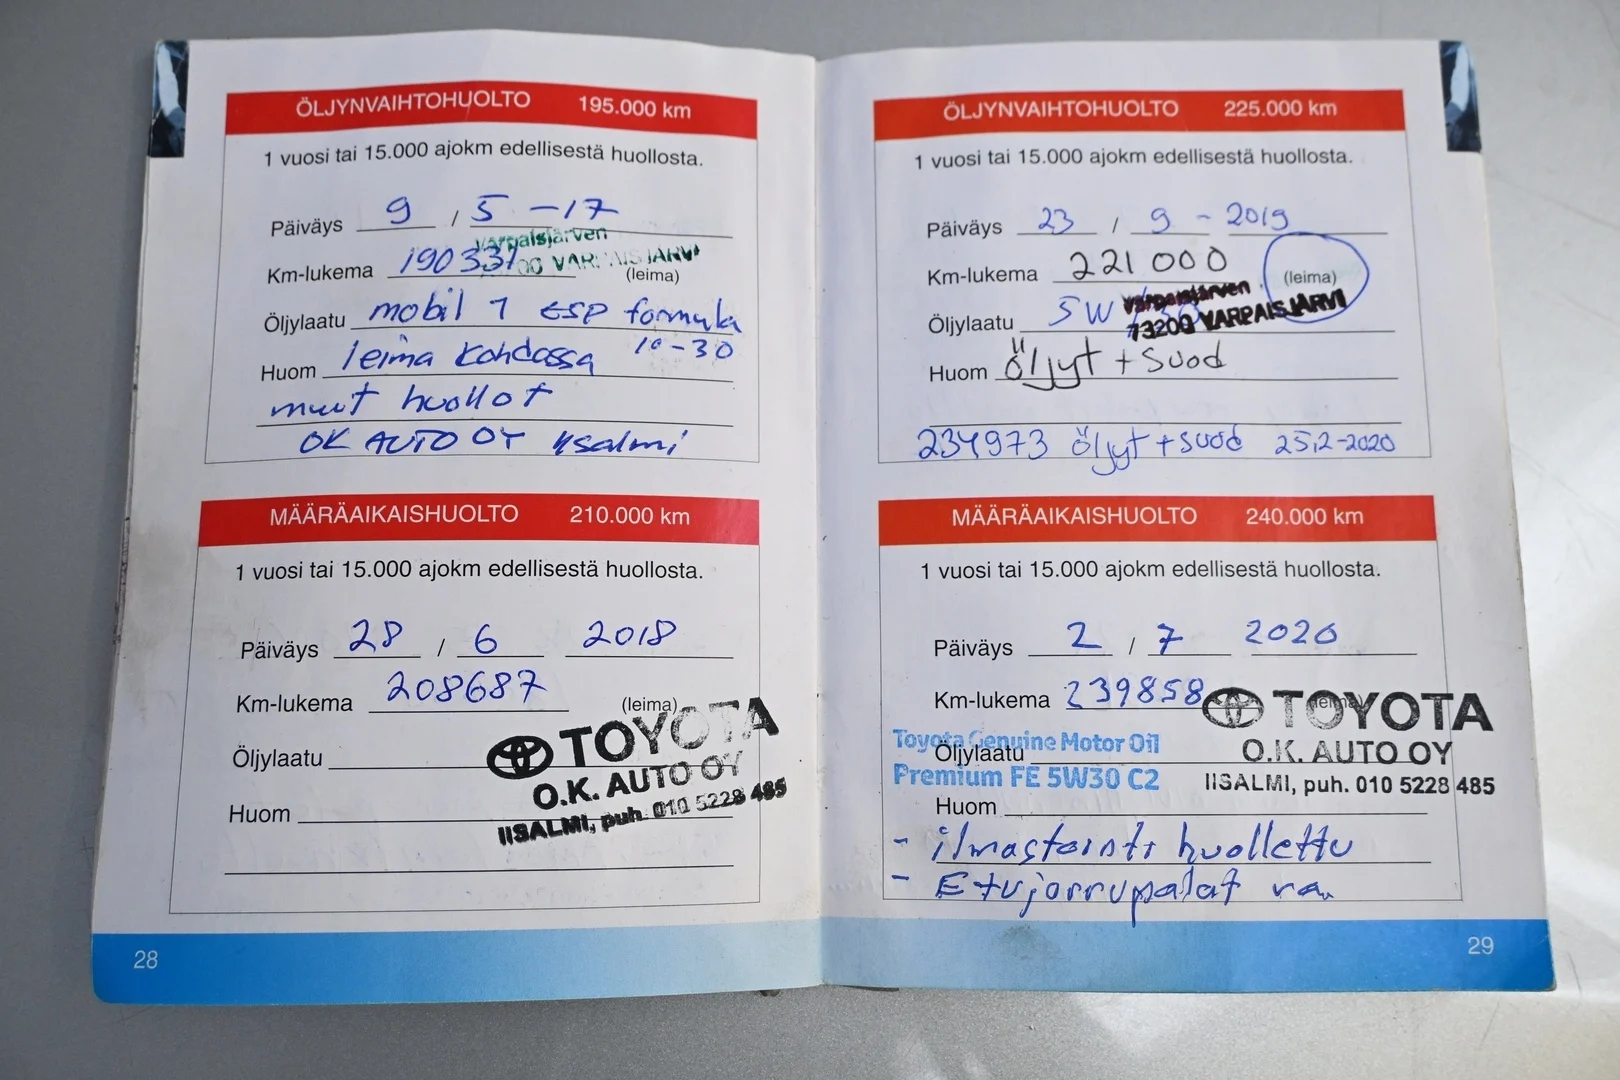 ÖLJYNVAIHTOHUOLTO 195.000 km
1 vuosi tai 15.000 ajokm edellisestä huollosta.
Päiväys 9 / 5 -17
Varpaisjärven
Km-lukema 190331 00 VARPAISJÄRVI
(leima)
Öljylaatu mobil 1 ESP formula
10-30
Huom leima kohdassa
muut huollot
OK AUTO OY Iisalmi
MÄÄRÄAIKAISHUOLTO 210.000 km
1 vuosi tai 15.000 ajokm edellisestä huollosta.
Päiväys 28 / 6 2018
Km-lukema 208687 (leima)
TOYOTA
Öljylaatu
O.K. AUTO OY
Huom
IISALMI, puh. 010 5228 485
28
ÖLJYNVAIHTOHUOLTO 225.000 km
1 vuosi tai 15.000 ajokm edellisestä huollosta.
Päiväys 23 / 9 - 2019
Km-lukema 221000 (leima)
Varpaisjärven
Öljylaatu 5W
73200 VARPAISJÄRVI
Huom Öljyt + Suod
234973 öljyt + suod 25.2-2020
MÄÄRÄAIKAISHUOLTO 240.000 km
1 vuosi tai 15.000 ajokm edellisestä huollosta.
Päiväys 2 / 7 2020
Km-lukema 239858 (leima)
TOYOTA
Toyota Genuine Motor Oil
Öljylaatu
O.K. AUTO OY
Premium FE 5W30 C2
IISALMI, puh. 010 5228 485
Huom
- ilmastointi huollettu
- Etujarrupalat
29